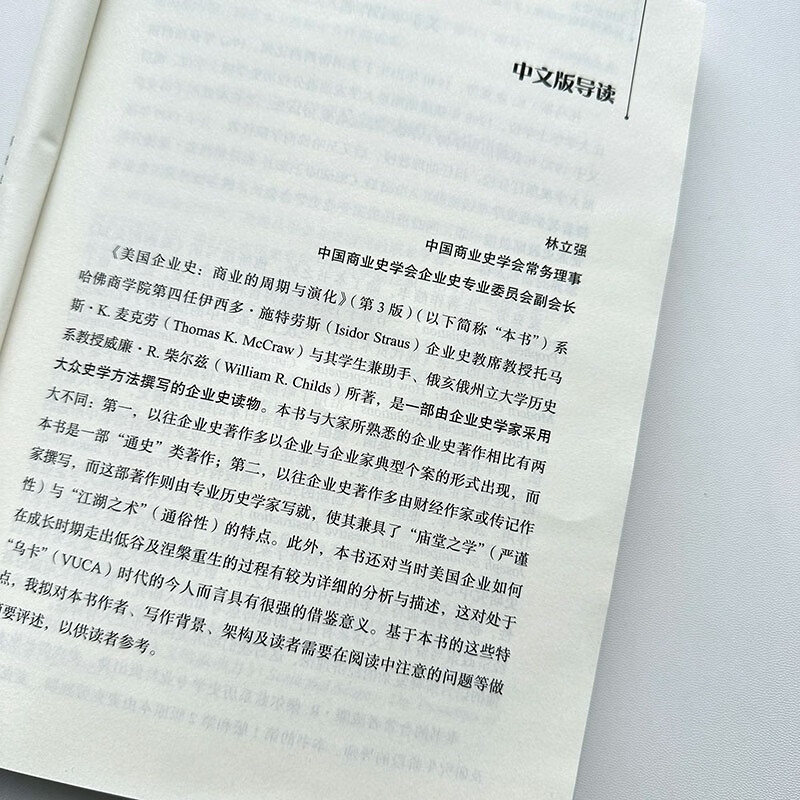 中文版导读
林立强
中国商业史学会常务理事
中国商业史学会企业史专业委员会副会长
《美国企业史：商业的周期与演化》（第 3 版）（以下简称“本书”）系
哈佛商学院第四任伊西多·施特劳斯（Isidor Straus）企业史教席教授托马
斯·K. 麦克劳（Thomas K. McCraw）与其学生兼助手、俄亥俄州立大学历史
系教授威廉·R. 柴尔兹（William R. Childs）所著，是一部由企业史学家采用
大众史学方法撰写的企业史读物。本书与大家所熟悉的企业史著作相比有两
大不同：第一，以往企业史著作多以企业与企业家典型个案的形式出现，而
本书是一部“通史”类著作；第二，以往企业史著作多由财经作家或传记作
家撰写，而这部著作则由专业历史学家写就，使其兼具了“庙堂之学”（严谨
性）与“江湖之术”（通俗性）的特点。此外，本书还对当时美国企业如何
在成长时期走出低谷及涅槃重生的过程有较为详细的分析与描述，这对处于
“乌卡”（VUCA）时代的今人而言具有很强的借鉴意义。基于本书的这些特
点，我拟对本书作者、写作背景、架构及读者需要在阅读中注意的问题等做
要评述，以供读者参考。